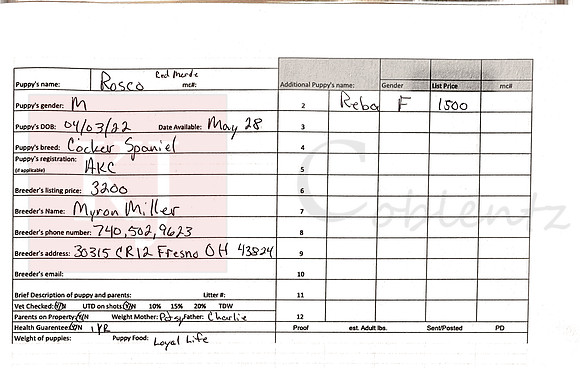 Puppy's name: Rosco mc#: Additional Puppy's name: Gender List Price mc#
Puppy's gender: M 2 Reba F 1500
Puppy's DOB: 04/03/22 Date Available: May 28 3
Puppy's breed: Cocker Spaniel 4
Puppy's registration: AKC 5
(if applicable)
Breeder's listing price: 3200 6
Breeder's Name: Myron Miller 7
Breeder's phone number: 740,502,9623 8
Breeder's address: 30315 CR12 Fresno OH 43824 9
Breeder's email: 10
Brief Description of puppy and parents: Litter #: 11
Vet Checked: Y/N UTD on shots Y/N 10% 15% 20% TDW
Parents on Property Y/N Weight Mother: Patsy Father: Charlie 12
Health Guarentee: Y/N 1 YR Proof est. Adult lbs. Sent/Posted PD
Weight of puppies: Puppy Food: Loyal Life
Coblentz